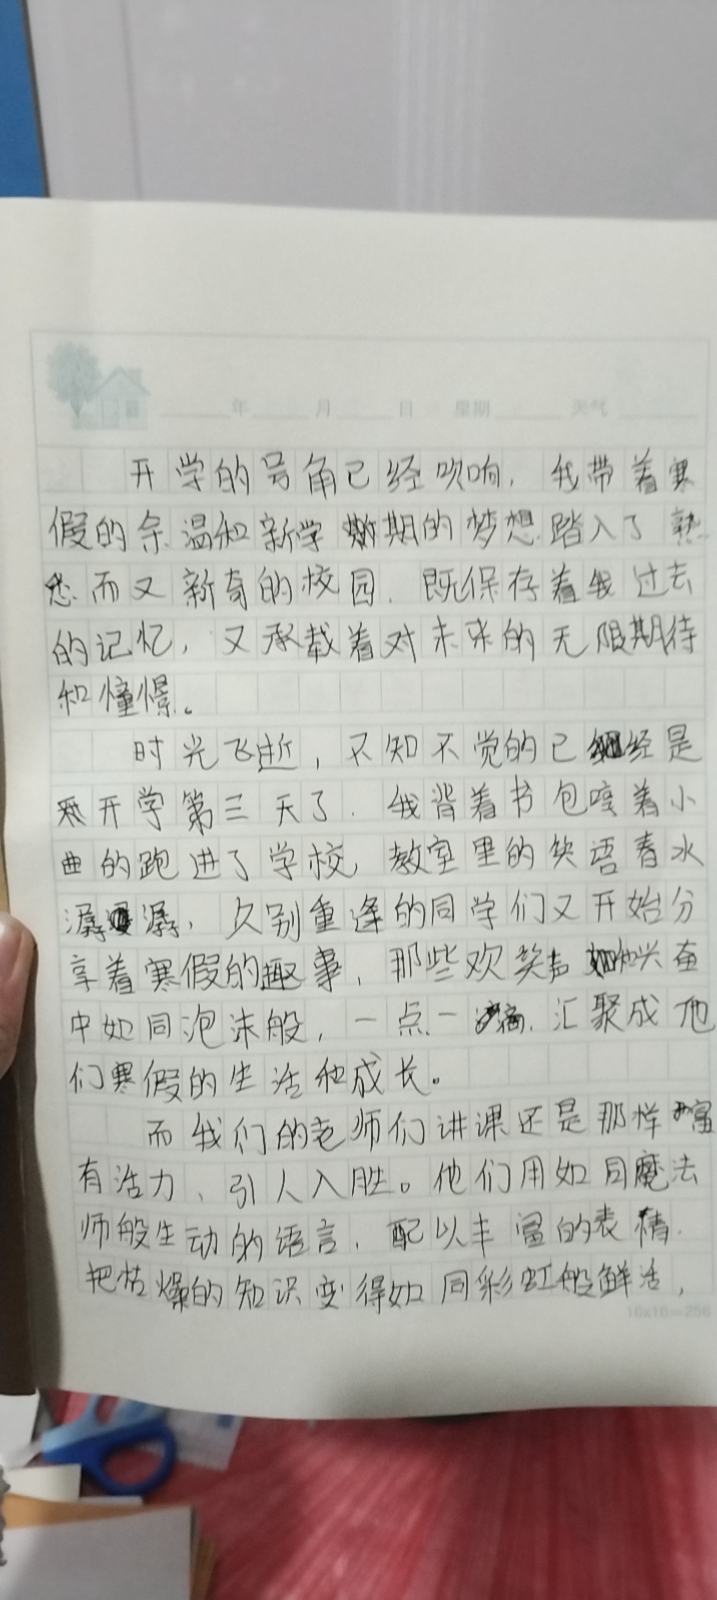 年 月 日 星期 天气
开学的号角已经吹响，我带着寒
假的余温和新学期的梦想踏入了熟
悉而又新奇的校园，既保存着我过去
的记忆，又承载着对未来的无限期待
和憧憬。
时光飞逝，不知不觉的已经是
开学第三天了，我背着书包哼着小
曲的跑进了学校，教室里的笑语春水
潺潺，久别重逢的同学们又开始分
享着寒假的趣事，那些欢笑声和兴奋
中如同泡沫般，一点一滴，汇聚成他
们寒假的生活和成长。
而我们的老师们讲课还是那样富
有活力、引人入胜。他们用如同魔法
师般生动的语言，配以丰富的表情，
把枯燥的知识变得如同彩虹般鲜活，
16x16=256